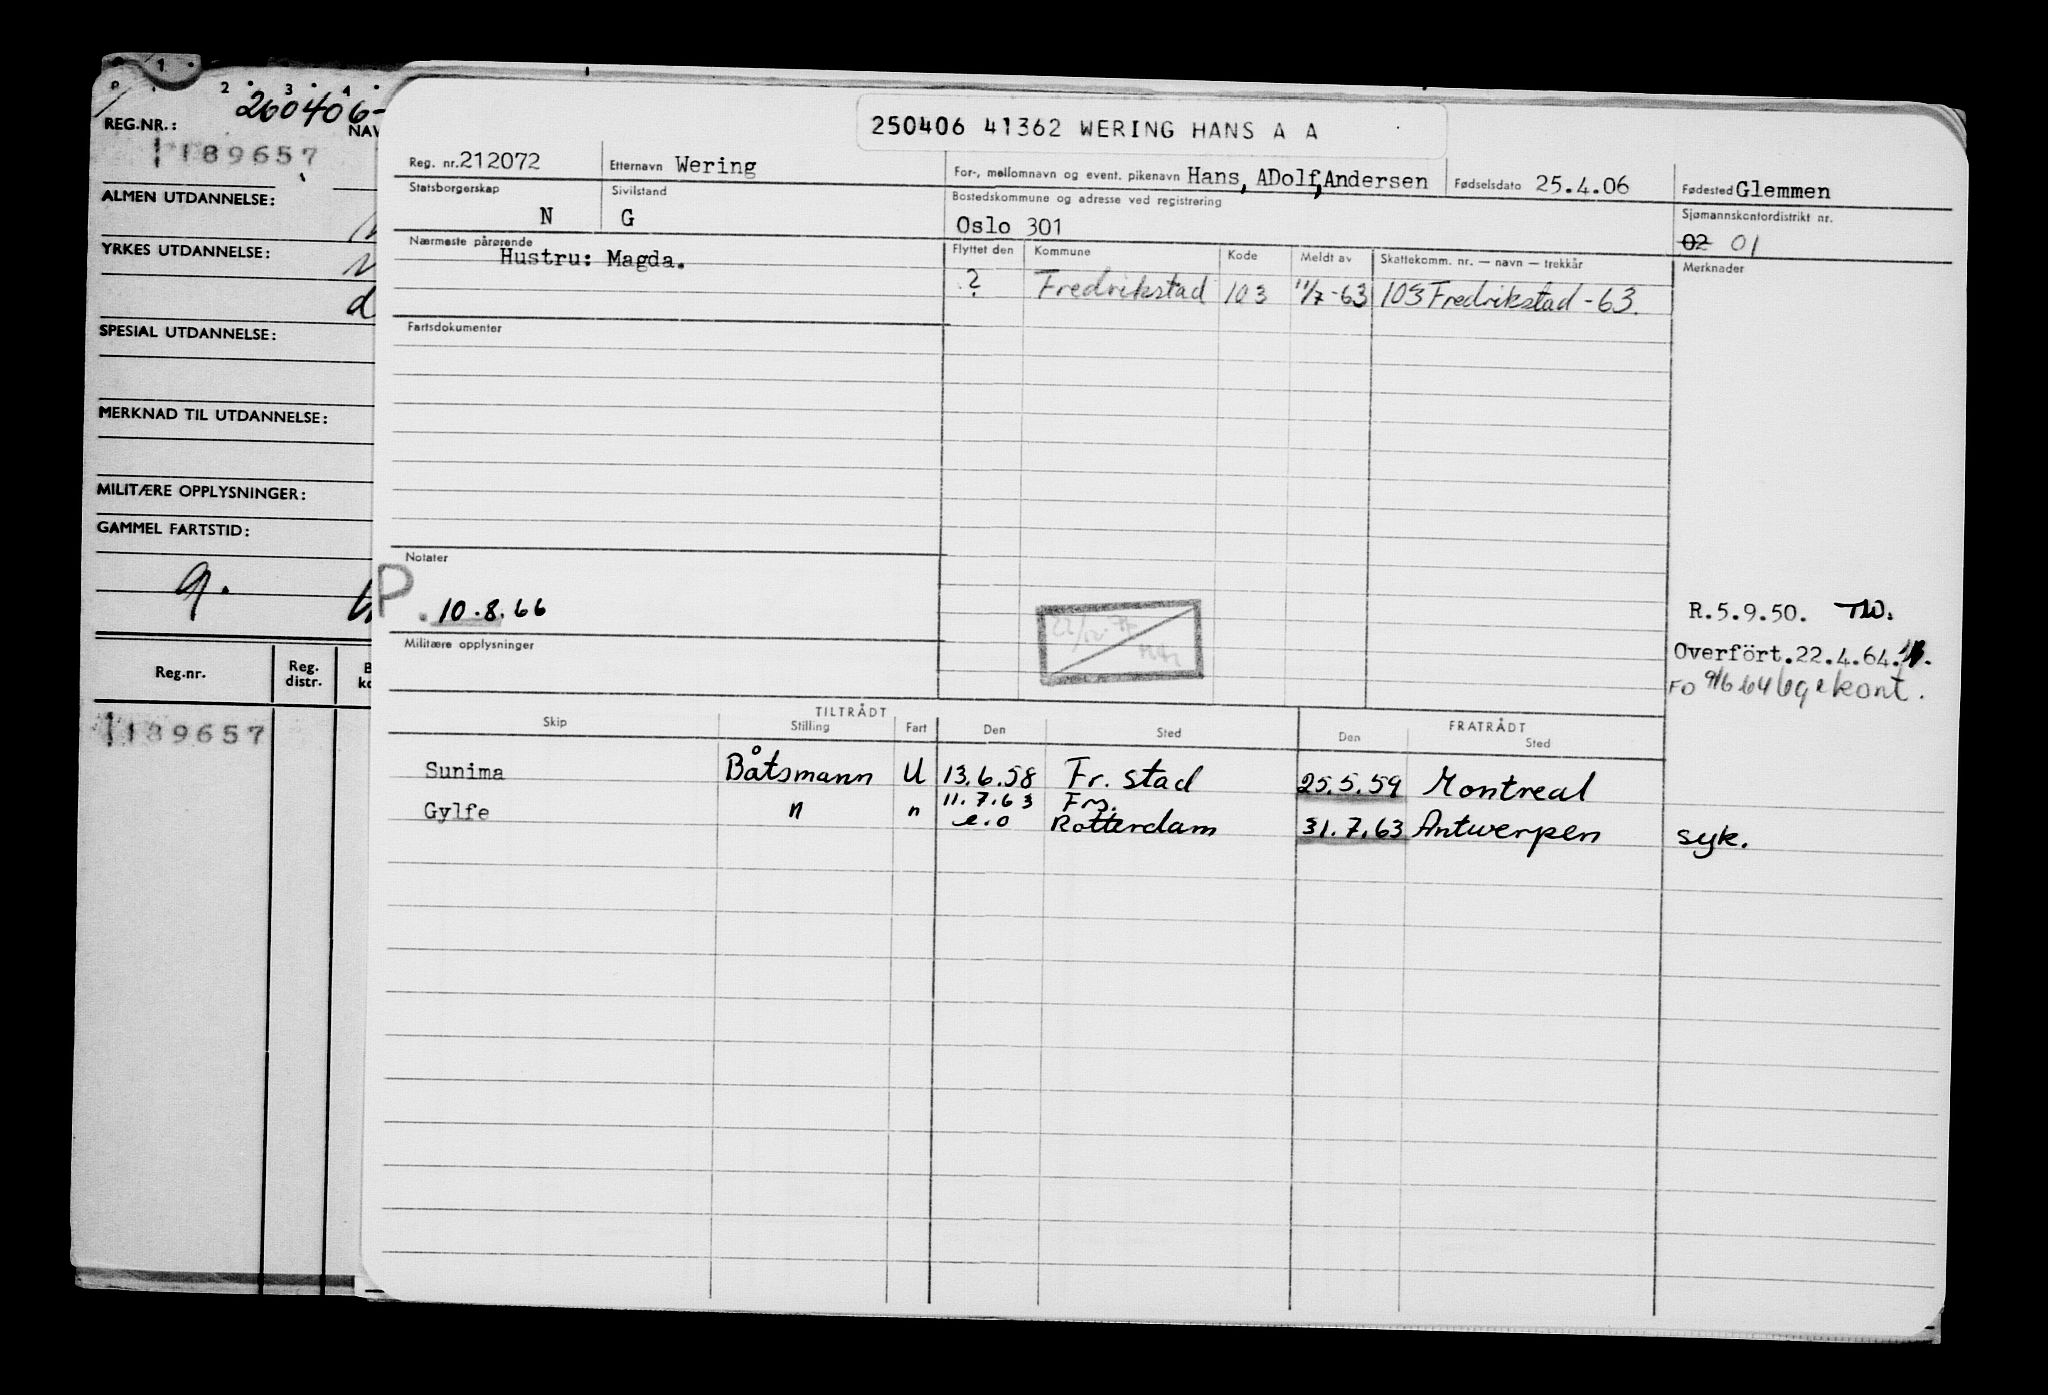 2 3 4
260406-
REG.NR.:
189657
ALMEN UTDANNELSE:
YRKES UTDANNELSE:
SPESIAL UTDANNELSE:
MERKNAD TIL UTDANNELSE:
MILITÆRE OPPLYSNINGER:
GAMMEL FARTSTID:
Reg.nr. Reg. distr.
189657
250406 41362 WERING HANS A A
Reg. nr. 212072 Etternavn Wering For-, mellomnavn og event. pikenavn Hans, ADolf, Andersen Fødselsdato 25.4.06 Fødested Glemmen
Statsborgerskap N Sivilstand G Bostedskommune og adresse ved registrering Oslo 301 Sjømannskontordistrikt nr. 02 01
Nærmeste pårørende Hustru: Magda.
Flyttet den Kommune Kode Meldt av Skattekomm. nr. — navn — trekkår Merknader
? Fredrikstad 103 11/7-63 103 Fredrikstad-63.
Fartsdokumenter
Notater
P. 10.8.66
Militære opplysninger
R.5.9.50. TW.
Overfört.22.4.64.
FO 9/6 64
TILTRÅDT FRATRÅDT
Skip Stilling Fart Den Sted Den Sted
Sunima Båtsmann U 13.6.58 Fr.stad 25.5.59 Montreal
Gylfe " " 11.7.63 Frs.
e.o Rotterdam 31.7.63 Antwerpen syk.